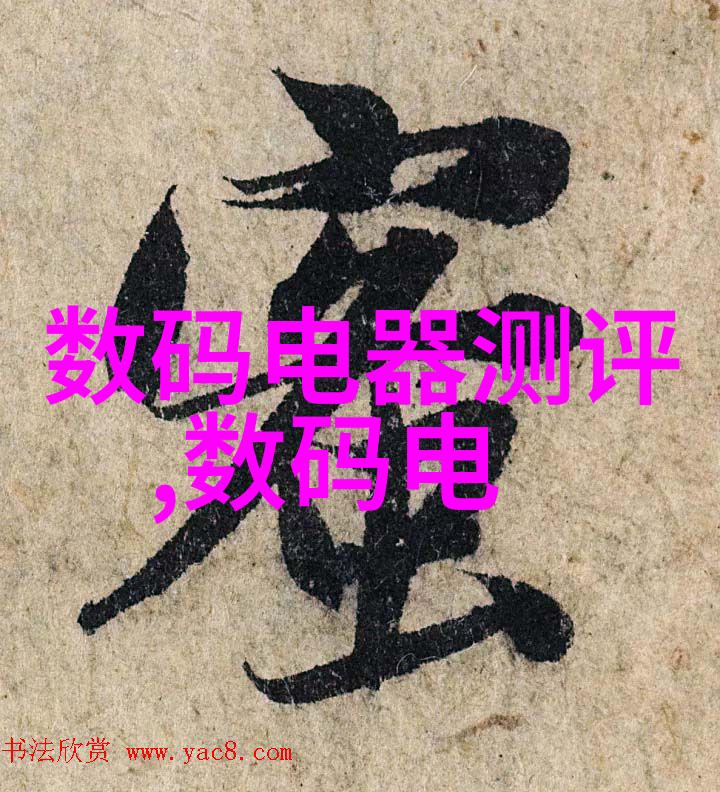 数码电器测评
,数码电
书法欣赏 www.yac8.com